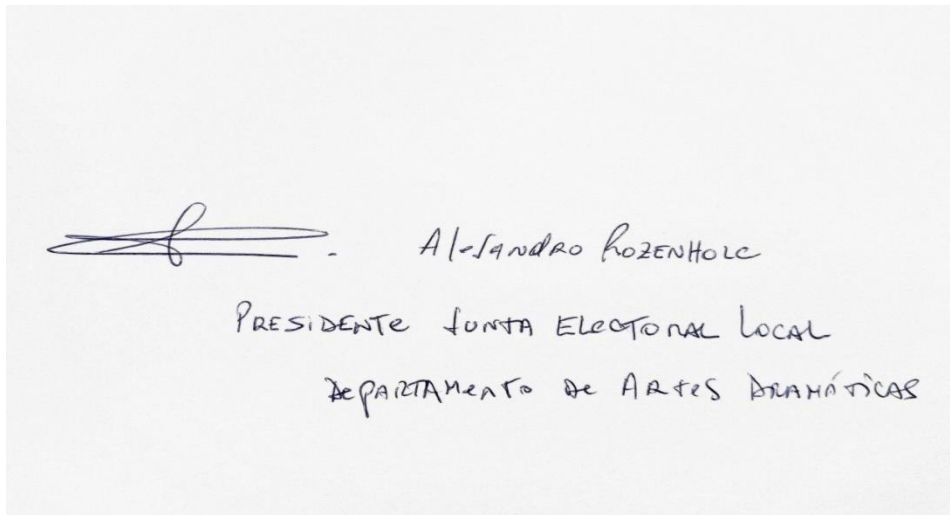 Alejandro Rozenholc
PRESIDENTE JUNTA ELECTORAL LOCAL
DEPARTAMENTO DE ARTES DRAMÁTICAS